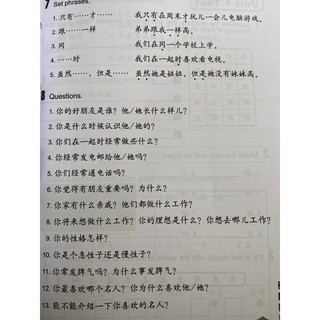 7 Set phrases.
1. 只有……才…… 我只有在周末才玩儿一会儿电脑游戏。
2. 跟……一样 弟弟跟我一样高。
3. 同 我们在同一个学校上学。
4. ……时 我们在一起时喜欢看电视。
5. 虽然……，但是…… 虽然她是姐姐，但是她没有妹妹高。
8 Questions.
1. 你的好朋友是谁？他/她长什么样儿？
2. 你是什么时候认识他/她的？
3. 你们在一起时经常做些什么？
4. 你经常发电邮给他/她吗？
5. 你们经常通电话吗？
6. 你觉得有朋友重要吗？为什么？
7. 你家有什么亲戚？他们都做什么工作？
8. 你将来想做什么工作？你的理想是什么？你想去哪儿工作？
9. 你的性格怎样？
10. 你是个急性子还是慢性子？
11. 你常发脾气吗？为什么事发脾气？
12. 你最喜欢哪个名人？你为什么喜欢他/她？
13. 能不能介绍一下你喜欢的名人？